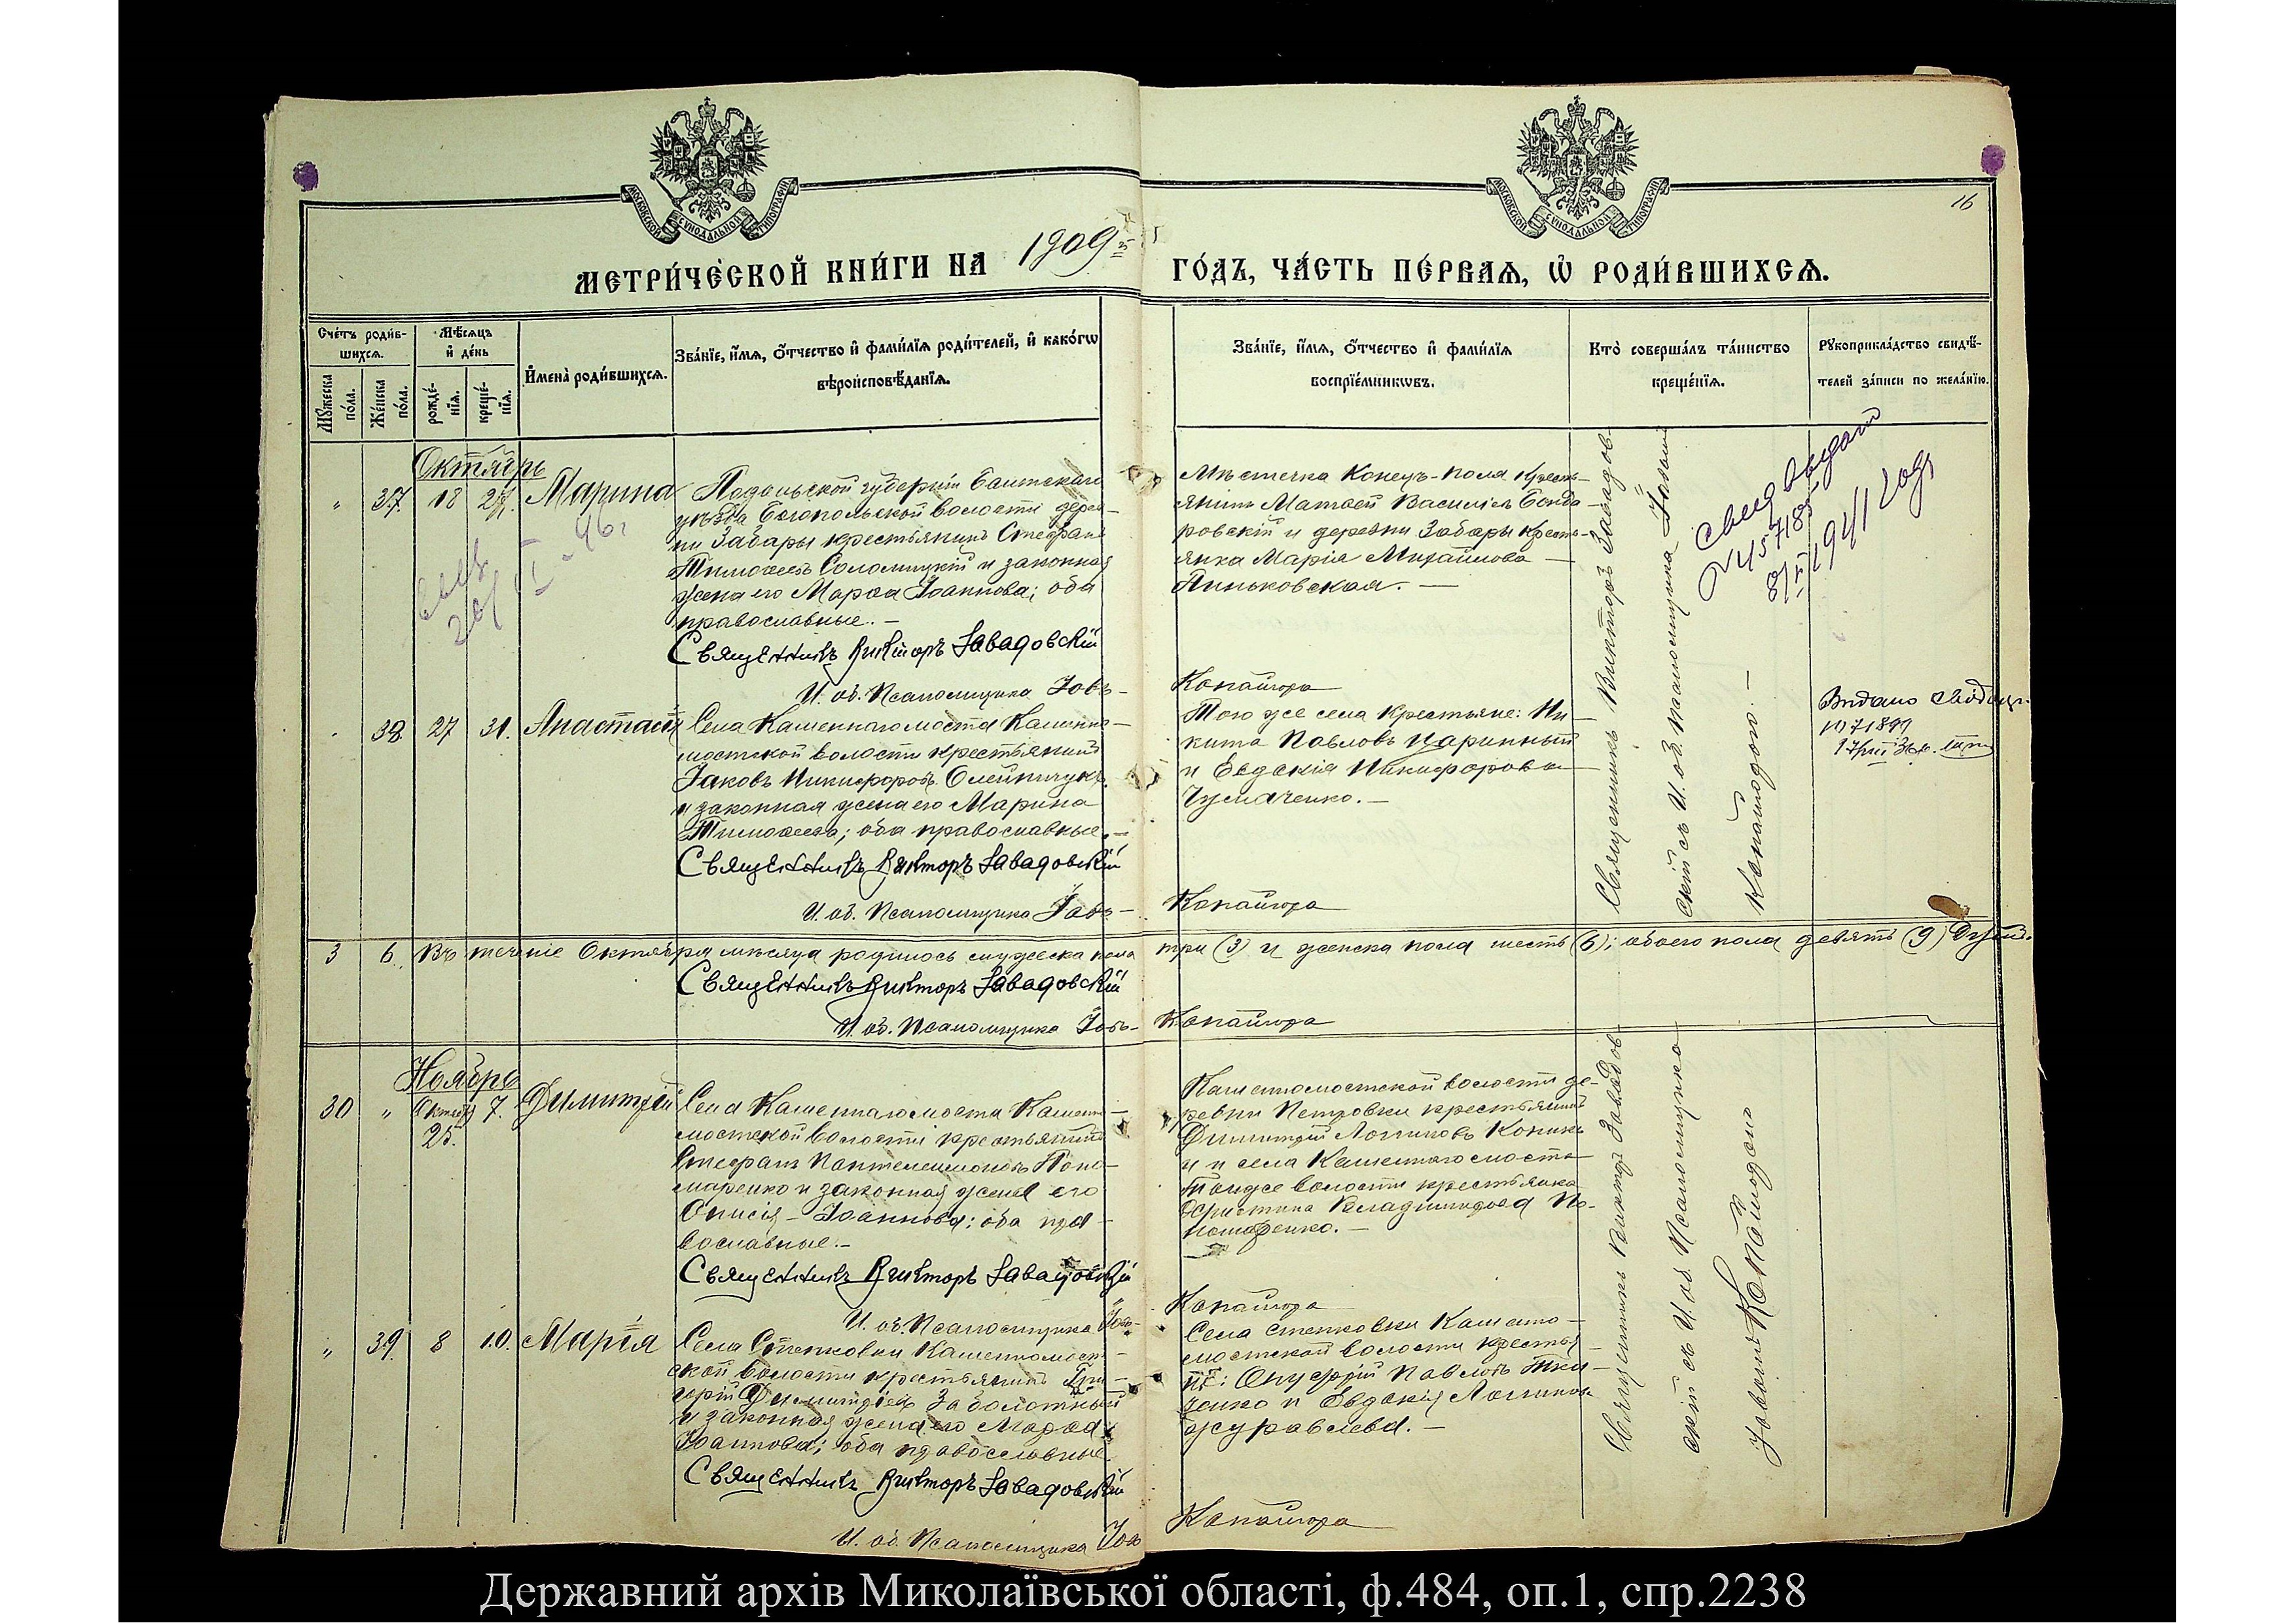 МОСКОВСКОЙ СѴНОДАЛЬНОЙ ТИПОГРАФІИ
МОСКОВСКОЙ СѴНОДАЛЬНОЙ ТИПОГРАФІИ
16
МЕТРИ́ЧЕСКОЙ КНИ́ГИ НА 1909 ГО́ДЪ, ЧА́СТЬ ПЕ́РВАѦ, Ѡ҆ РОДИ́ВШИХСѦ.
Сче́тъ роди́в-
шихсѧ.
Мꙋжеска по́ла.
Же́нска по́ла.
Мѣ́сѧцъ и҆ де́нь
рожде́-нїѧ.
креще́-нїѧ.
И҆мена̀ роди́вшихсѧ.
Зва́нїе, и҆́мѧ, ѻ҆́тчество и҆ фами́лїѧ роди́телей, и҆ како́гѡ
вѣроисповѣ́данїѧ.
Зва́нїе, и҆́мѧ, ѻ҆́тчество и҆ фами́лїѧ
воспрїе́мникѡвъ.
Кто̀ соверша́лъ та́инство
креще́нїѧ.
Рꙋкоприкла́дство свидѣ́-
телей за́писи по жела́нїю.
Октябрь
" 37. 18 27. Марина
Подольской губерніи Балтскаго
уѣзда Богопольской волости дерев-
ни Забары крестьянинъ Стефанъ
Тимоѳеевъ Соломицкій и законная
жена его Марѳа Іоаннова; оба
православные. —
Священникъ Викторъ Завадовскій
И. об. Псаломщика Іовъ
Мѣстечка Конецъ-поля кресть-
янинъ Матѳей Василіевъ Бонда-
ровскій и деревни Забары кресть-
янка Марія Михайлова
Пиньковская. —
Копайгора
Священникъ Викторъ Завадов-
скій съ И. об. псаломщика Іовомъ
Копайгорою. —
Свид выдат
№ 457185
8/I 1941 года
20/I - 46 г
38 27 31. Анастасія
Села Каменнаго моста Каменно-
мостской волости крестьянинъ
Іаковъ Никифоровъ Олейничукъ
и законная жена его Марина
Тимоѳеева; оба православные. —
Священникъ Викторъ Завадовскій
И. об. Псаломщика Іовъ
Того же села крестьяне: Ни-
кита Павловъ Царинный
и Евдокія Никифорова
Чумаченко. —
Копайгора
Видано свідоцт.
71899
3 6 Въ теченіе Октября мѣсяца родилось мужеска пола три (3) и женска пола шесть (6); обоего пола девять (9) душъ.
Священникъ Викторъ Завадовскій
И. об. Псаломщика Іовъ Копайгора
Ноябрь
30 " Октября 25. 7. Димитрій
Села Каменнаго моста Каменно-
мостской волости крестьянинъ
Стефанъ Пантелеимоновъ Поно-
маренко и законная жена его
Онисія Іоаннова; оба пра-
вославные. —
Священникъ Викторъ Завадовскій
И. об. Псаломщика Іовъ
Каменномостской волости де-
ревни Петровки крестьянинъ
Димитрій Логиновъ
и села Каменнаго моста
той же волости крестьянка
Христина Владимирова По-
номаренко. —
Копайгора
Священникъ Викторъ Завадов-
скій съ И. об. Псаломщика
Іовомъ Копайгорою
" 39. 8 10. Марія
Села Степковки Каменномост-
ской волости крестьянинъ Гри-
горій Димитріевъ Заболотный
и законная жена его Марѳа
Іоаннова; оба православные
Священникъ Викторъ Завадовскій
И. об. Псаломщика Іовъ
Села Степковки Каменно-
мостской волости крестья-
не: Онуфрій Павловъ Тка-
ченко и Евдокія Логинова
Журавлева. —
Копайгора
Державний архів Миколаївської області, ф.484, оп.1, спр.2238